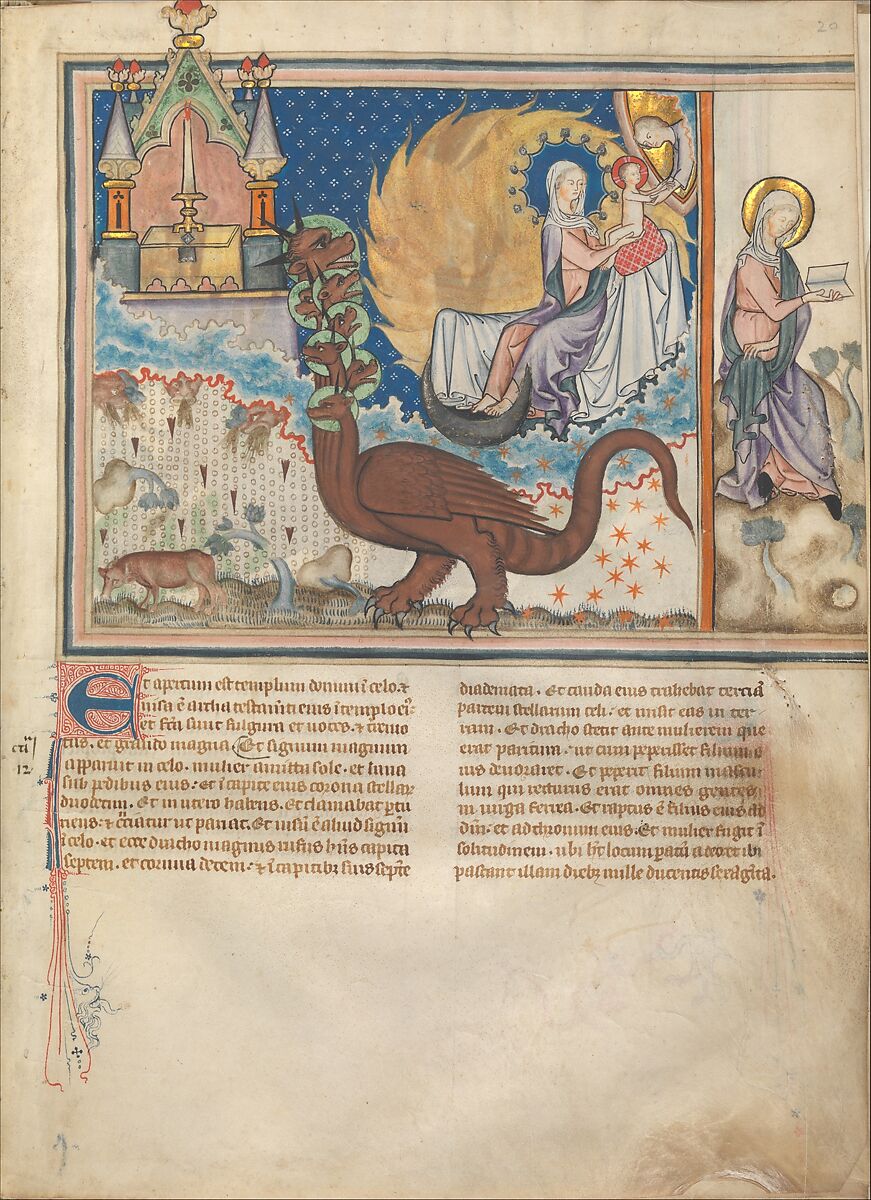 20
Et apertum est templum domini ī celo. ⁊
uisa ē archa testamēti eius ī templo ei⁹.
et fc̄a sunt fulgura et uoces. ⁊ terremo
tus. et grando magna Et signum magnum
apparuit in celo. mulier amicta sole. et luna
sub pedibus eius. Et ī capite eius corona stellar̄
duodecim. Et in utero habens. Et clamabat partu
riens. ⁊ cruciatur ut pariat. Et uisū ē aliud signū
ī celo. et ecce dracho magnus rufus hn̄s capita
septem. et cornua decem. ⁊ ī capitibꝫ suis septē
12
diademata. Et cauda eius trahebat terciā
partem stellarum celi. et misit eas in ter
ram. Et dracho stetit ante mulierem que
erat paritura. ut cum peperisset filium e
ius deuoraret. Et peperit filium mascu
lum qui recturus erat omnes gentes
in uirga ferrea. Et raptus ē filius eius ad
dm̄. et ad thronum eius. Et mulier fugit ī
solitudinem. ubi ht̄ locum paratū a deo et ibi
pascant illam diebꝫ mille ducentis sexagīta.